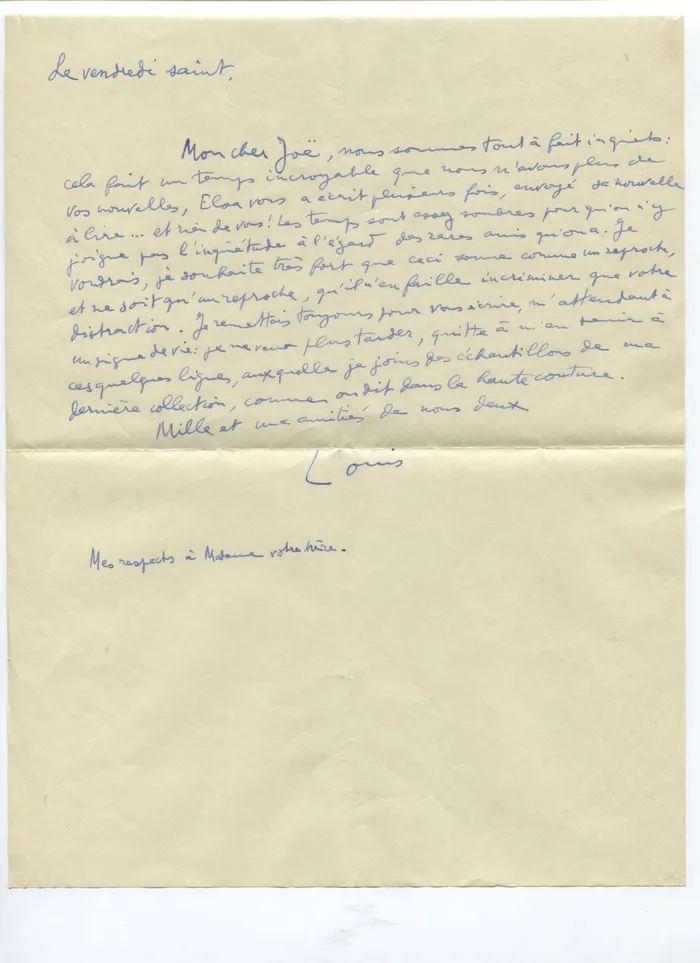 Le vendredi saint.
Mon cher Joë, nous sommes tout à fait inquiets :
cela fait un temps incroyable que nous n'avons plus de
vos nouvelles, Elsa vous a écrit plusieurs fois, envoyé sa nouvelle
à lire... et rien de vous ! Les temps sont assez sombres pour qu'on n'y
joigne pas l'inquiétude à l'égard des rares amis qu'on a. Je
voudrais, je souhaite très fort que ceci sonne comme un reproche,
et ne soit qu'un reproche, qu'il n'en faille incriminer que votre
distraction. Je remettais toujours pour vous écrire, m'attendant à
un signe de vie : je ne veux plus tarder, quitte à m'en tenir à
ces quelques lignes, auxquelles je joins des échantillons de ma
dernière collection, comme on dit dans la haute couture.
Mille et une amitiés de nous deux
Louis
Mes respects à Madame votre mère.